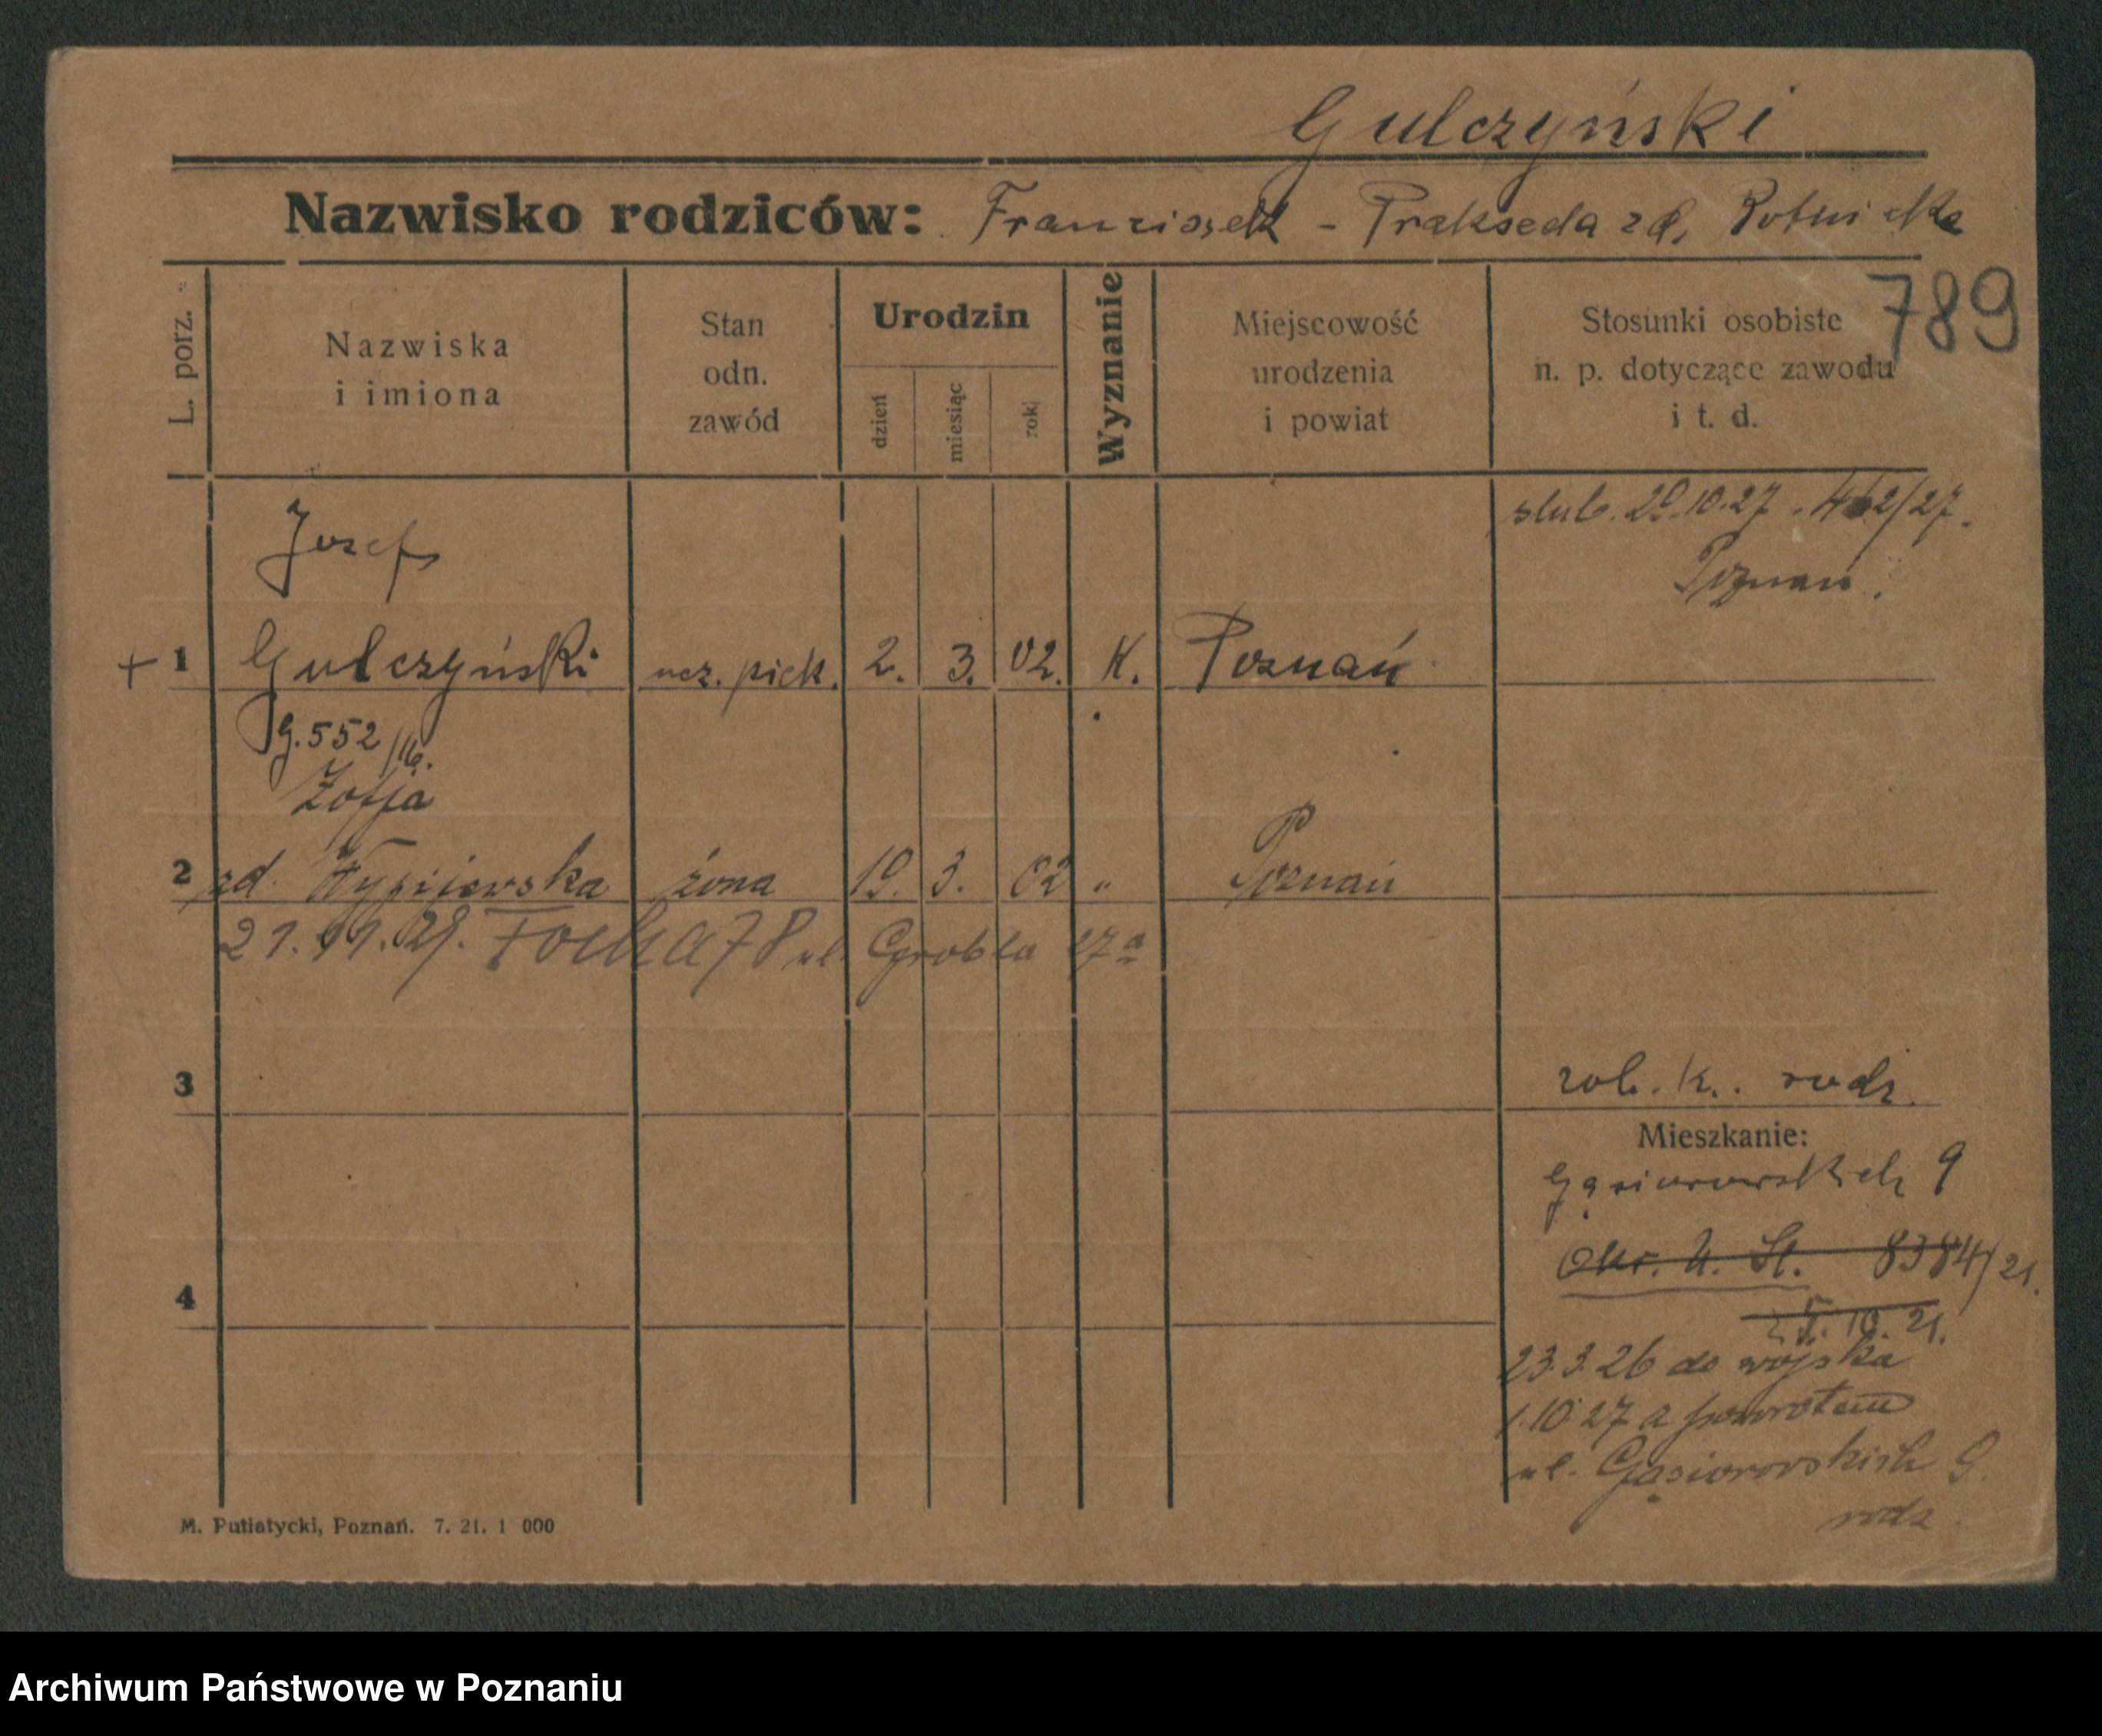 Gulczyński
Nazwisko rodziców: Franciszek - Prakseda zd. Rotnicka
789
L. porz.
Nazwiska
i imiona
Stan
odn.
zawód
Urodzin
dzień
miesiąc
rok
Wyznanie
Miejscowość
urodzenia
i powiat
Stosunki osobiste
n. p. dotyczące zawodu
i t. d.
slub. 29.10.27
Poznań.
Jozef
+ 1 Gulczyński ucz. piek. 2. 3. 02. K. Poznań
G. 552
Zofja
2 zd. Wypijewska żona 19. 3. 02 " Poznań
21.11.29. Focha 78 ul. Grobla 27a
3
rob. k. rodz.
Mieszkanie:
Gąsiorowskich 9
Okr. U. St. 8384/21.
4
10. 21.
23.3.26 do wojska
1.10 27 z powrotem
ul. Gąsiorowskich 9.
rodz.
M. Putiatycki, Poznań. 7. 21. 1 000
Archiwum Państwowe w Poznaniu